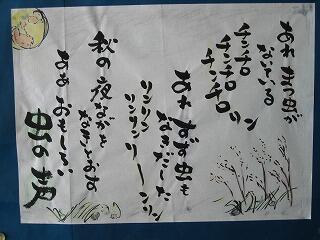 あれ まつ虫が
ないている
チンチロ
チンチロ
チンチロリン
あれ すず虫も
なきだした
リンリン
リンリン
リーンリン
秋の夜ながを
なきとおす
ああ おもしろい
虫の声